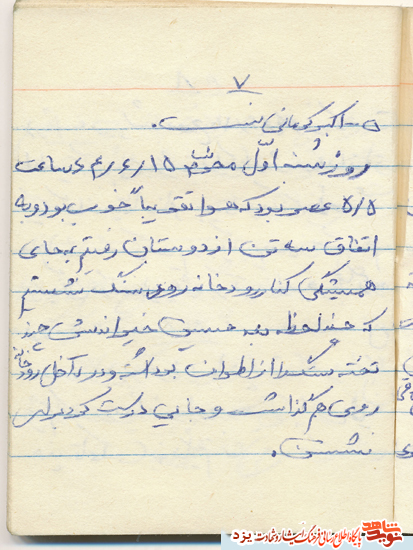 ۷
۵- اکبر کرمانی نسب.
روز شنبه اوّل محرم ۶۴/۶/۱۵ ساعت
۵/۵ عصر بود که هوا تقریباً خوب بود و به
اتفاق سه تن از دوستان رفتیم به جای
همیشگی کنار رودخانه روی سنگ نشستیم
که چند لحظه بعد حسین خیراندیش چند
تخته سنگ را از اطراف برداشته و در داخل رودخانه
روی هم گذاشت و جایی درست کرد برای
نشستن.
نوید شاهد
پایگاه اطلاع رسانی فرهنگ ایثار و شهادت یزد